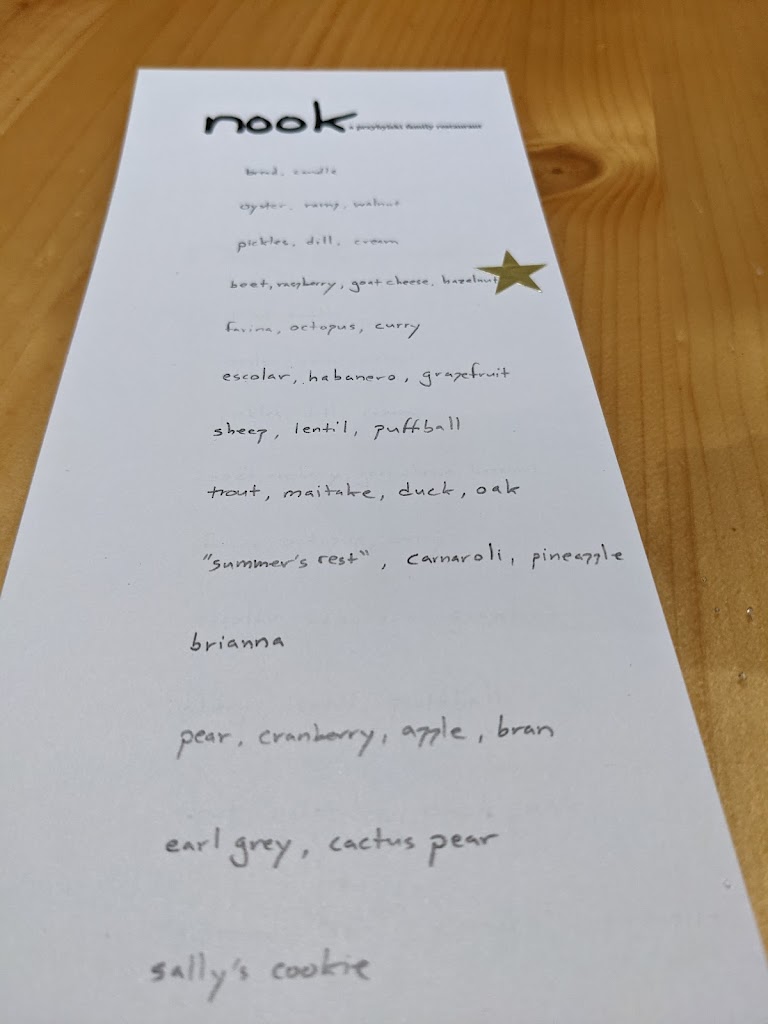 nook a przybylski family restaurant
bread, candle
oyster, ramp, walnut
pickles, dill, cream
beet, raspberry, goat cheese, hazelnut
farina, octopus, curry
escolar, habanero, grapefruit
sheep, lentil, puffball
trout, maitake, duck, oak
"summer's rest", carnaroli, pineapple
brianna
pear, cranberry, apple, bran
earl grey, cactus pear
sally's cookie